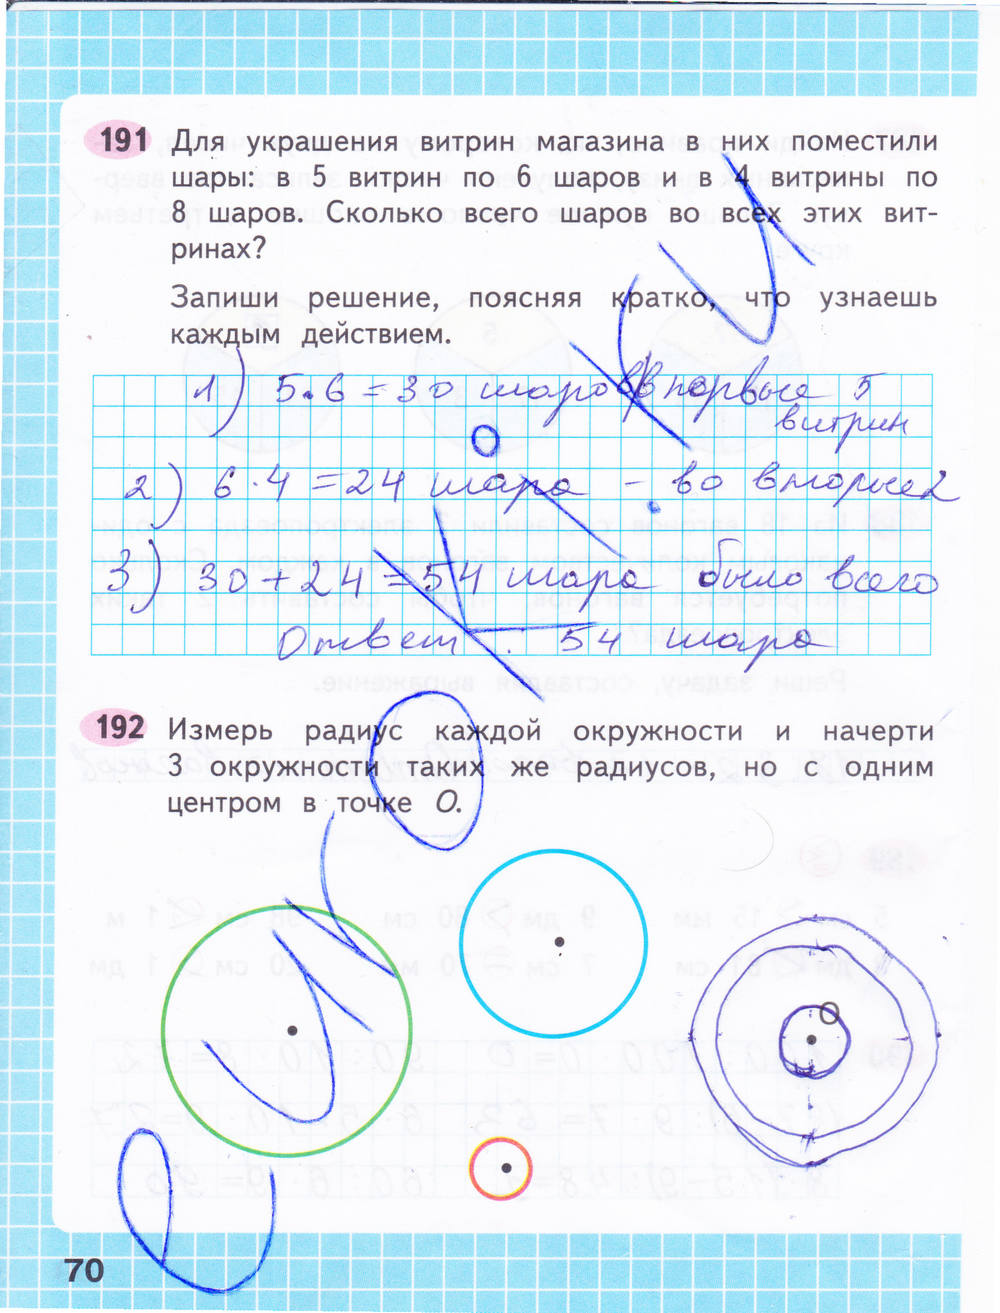 191 Для украшения витрин магазина в них поместили
шары: в 5 витрин по 6 шаров и в 4 витрины по
8 шаров. Сколько всего шаров во всех этих вит-
ринах?
Запиши решение, поясняя кратко, что узнаешь
каждым действием.
1) 5·6=30 шаров в первые 5
витрин
2) 6·4=24 шара – во вторые 2
3) 30+24=54 шара было всего
Ответ: 54 шара
192 Измерь радиус каждой окружности и начерти
3 окружности таких же радиусов, но с одним
центром в точке О.
О
70